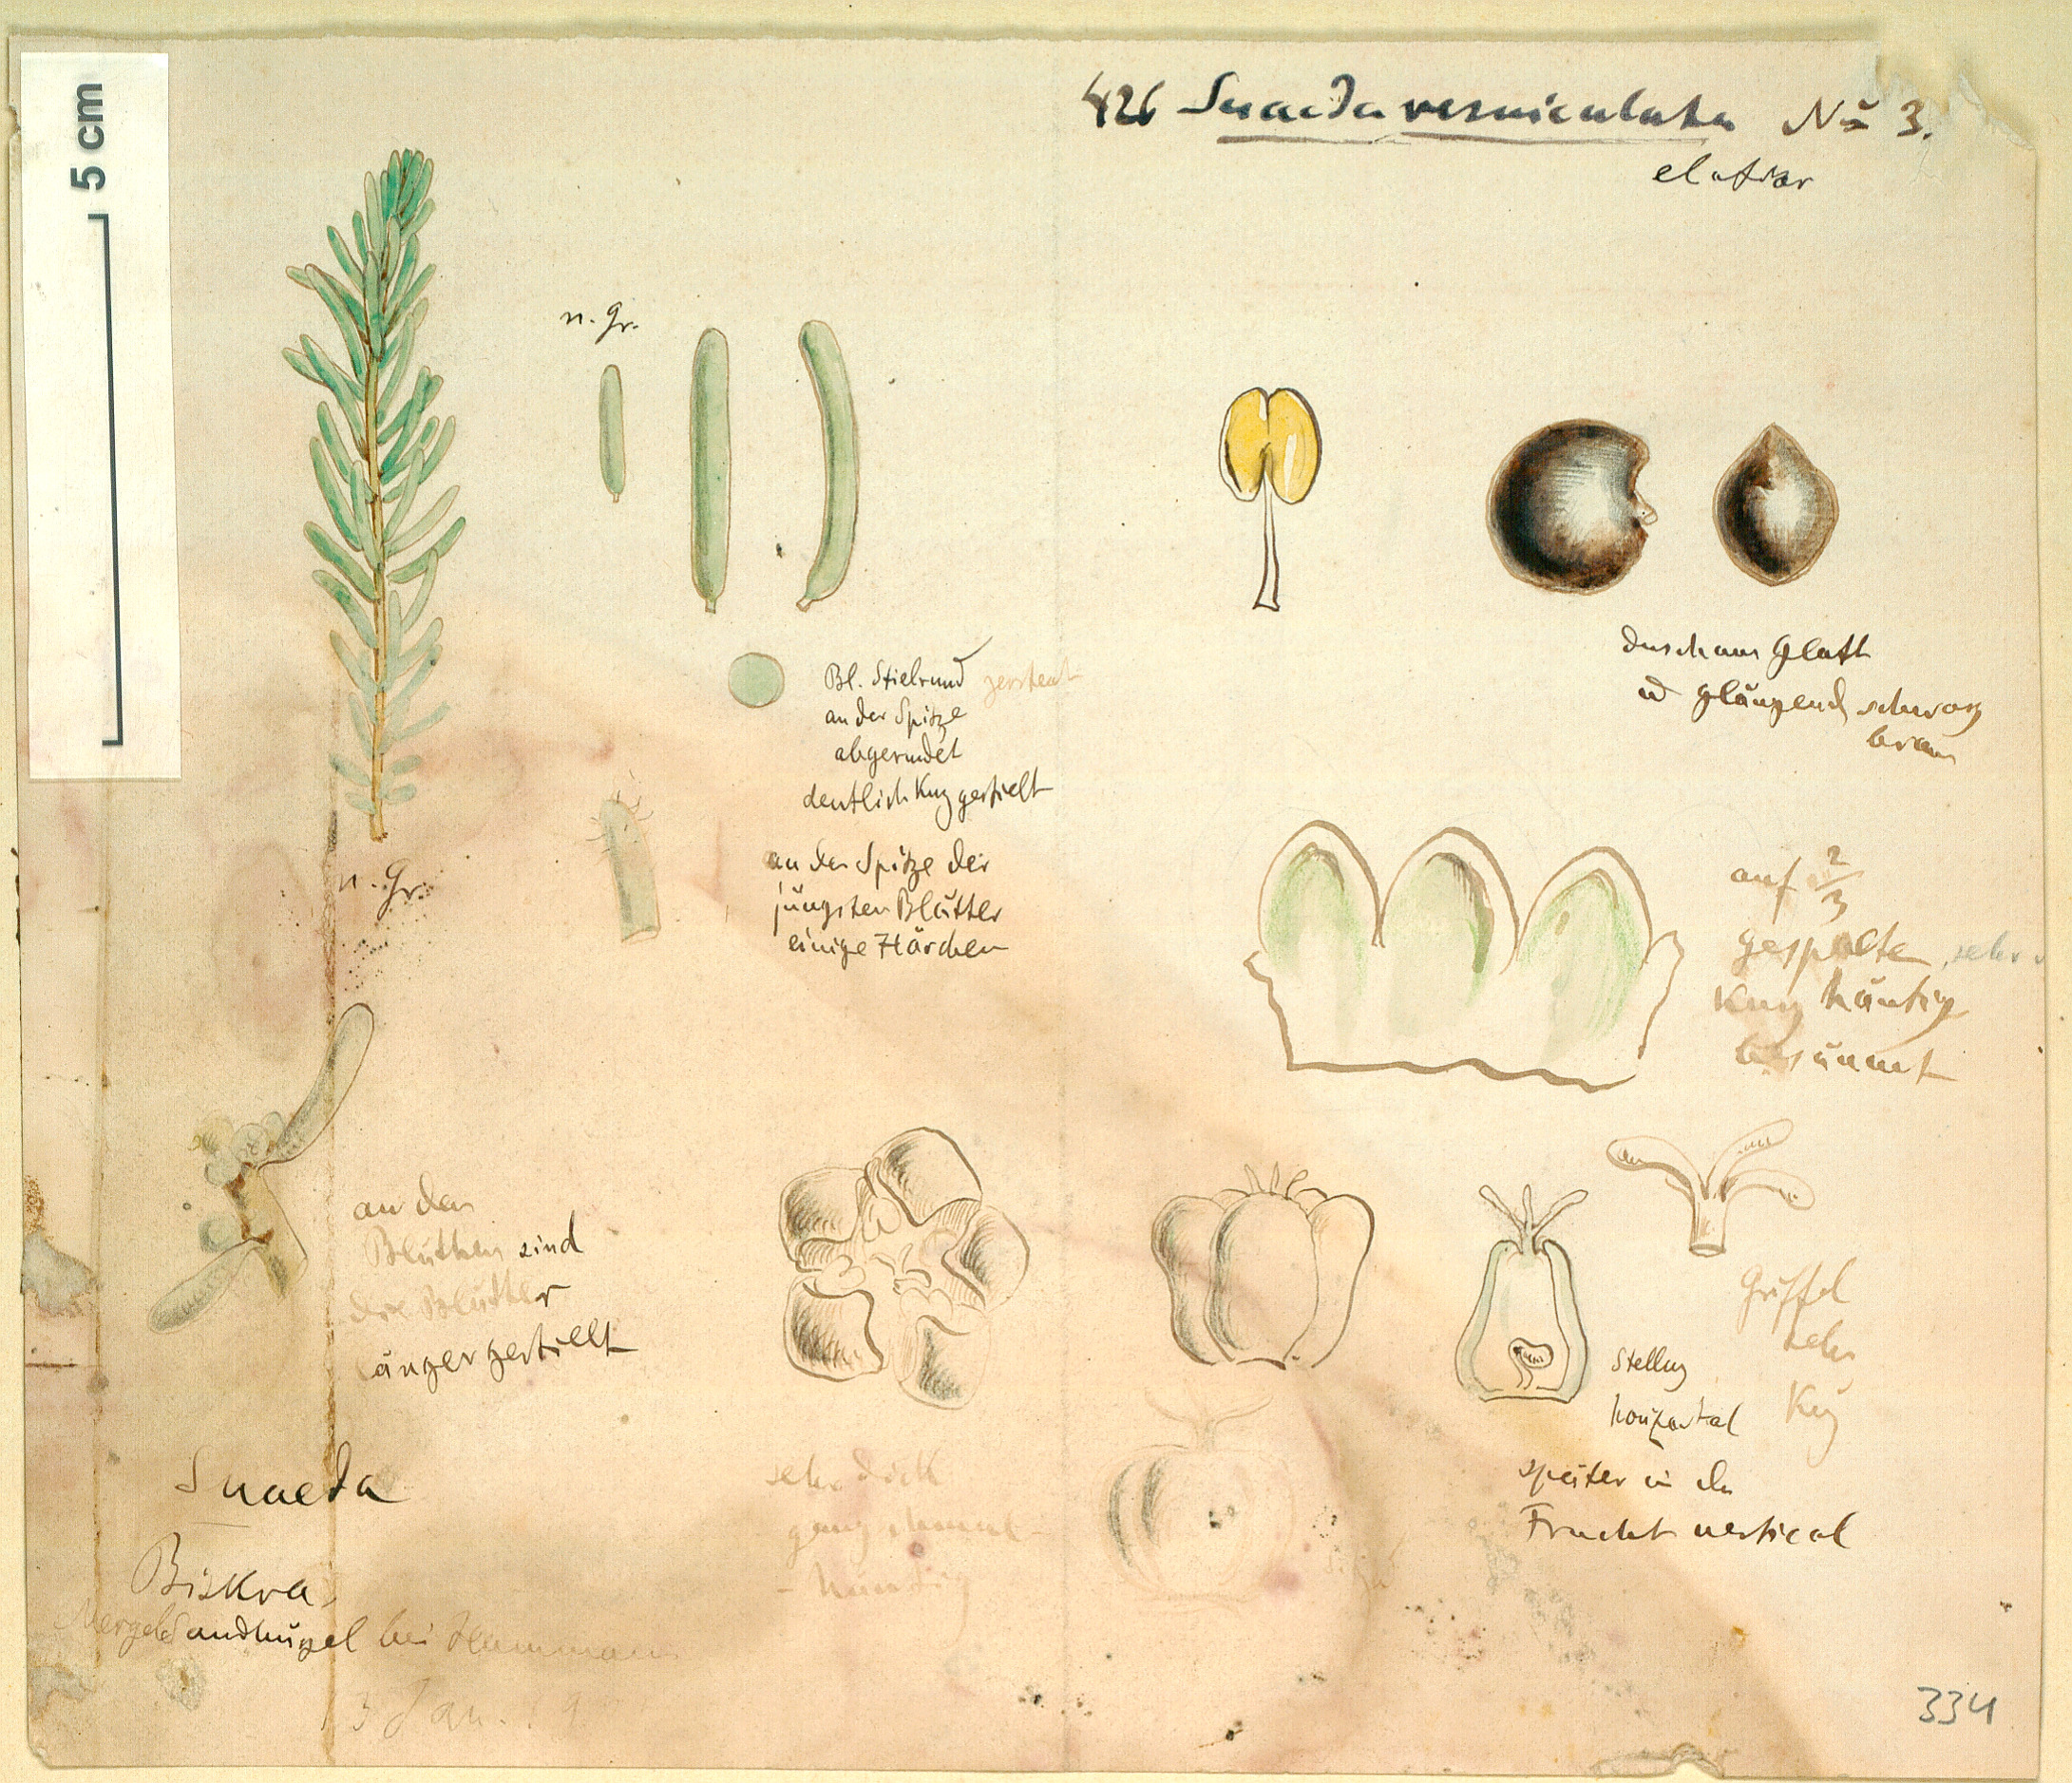 5 cm
426 Suaeda vermiculata No 3.
elatior
n. Gr.
Bl. Stielrund zerstreut
an der Spitze
abgerundet
deutlich kurz gestielt
an der Spitze der
jüngsten Blätter
einige Härchen
n. Gr.
durchaus glatt
u glänzend schwarz
braun
auf 2/3
gespalten, sehr
kurz häutig
besäumt
an den
Blüthen sind
die Blätter
länger gestielt
Griffel
sehr
kurz
Stellung
horizontal
später in der
Frucht vertical
sehr dick
ganz schmal
- häutig
Suaeda
Biskra,
Mergelsandhügel bei Hammam
3 Jan.
334